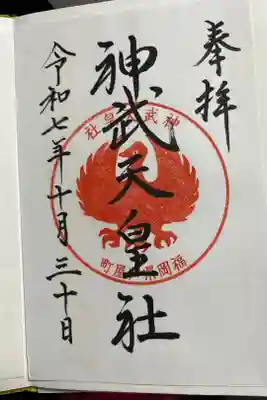 奉拝
神武天皇社
令和七年十月三十日
神武 皇社
福岡県 屋町